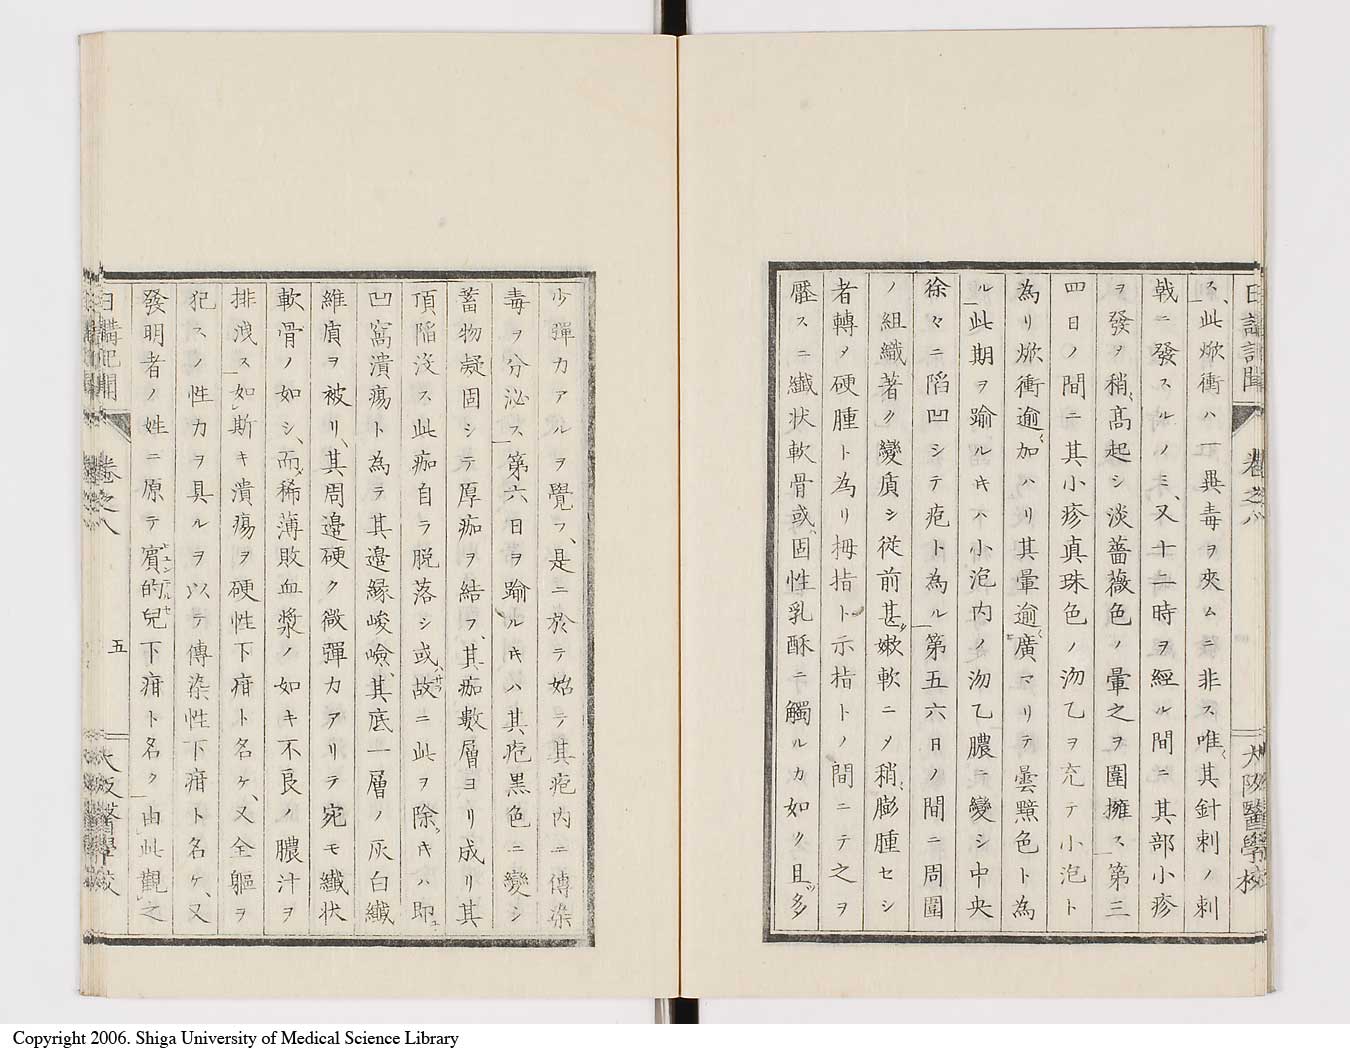 日講記聞 卷之八 大阪醫學校
ス、此焮衝ハ異毒ヲ夾ムニ非ス唯其針刺ノ刺
戟ニ發スルノミ、又十二時ヲ經ル間ニ其部小疹
ヲ發ヲ稍髙起シ淡薔薇色ノ暈之ヲ圍擁ス第三
四日ノ間ニ其小疹真珠色ノ沕乙ヲ充テ小泡ト
為リ焮衝逾加ハリ其暈逾廣マリテ曇黶色ト為
ル此期ヲ踰ルキハ小泡内ノ沕乙膿ニ變シ中央
徐々ニ陷凹シテ疱ト為ル第五六日ノ間ニ周圍
ノ組織著ク變質シ従前甚嫩軟ニメ稍膨腫セシ
者轉タ硬腫ト為リ拇指ト示指トノ間ニテ之ヲ
壓スニ纎状軟骨或固性乳酥ニ觸ルカ如ク且多
少彈力アルヲ覺フ、是ニ於テ始テ其疱内ニ傳染
毒ヲ分泌ス第六日ヲ踰ルキハ其疱黒色ニ變シ
蓄物凝固シテ厚痂ヲ結フ、其痂數層ヨリ成リ其
頂陷没ス此痂自ラ脱落シ或故ニ此ヲ除キハ即
凹窩潰瘍ト為ヲ其邉緣峻嶮其底一層ノ灰白纎
維質ヲ被リ、其周邉硬ク微彈力アリテ宛モ纎状
軟骨ノ如シ、而稀薄敗血漿ノ如キ不良ノ膿汁ヲ
排洩ス如斯キ潰瘍ヲ硬性下疳ト名ケ、又全軀ヲ
犯スノ性力ヲ具ルヲ以テ傳染性下疳ト名ケ、又
發明者ノ姓ニ原テ賓的兒下疳ト名ク由此觀之
日講記聞 卷之八 五 大阪醫學校